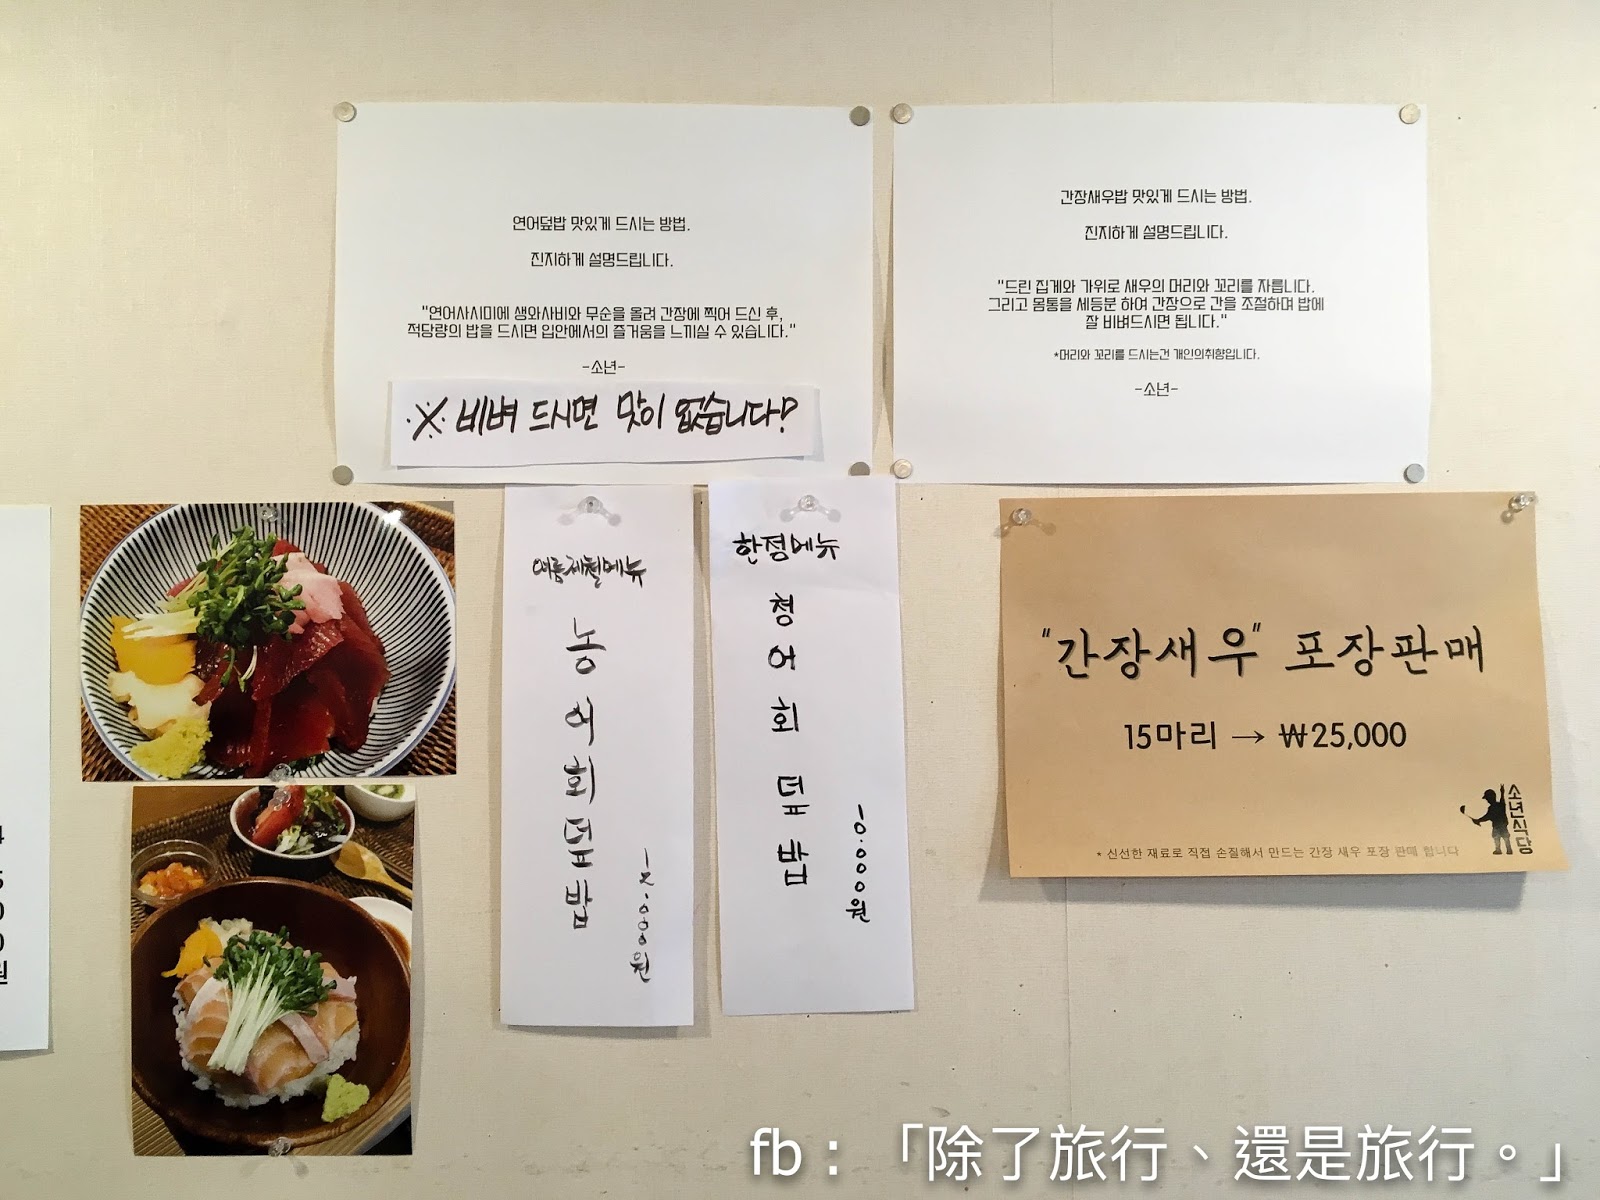 연어덮밥 맛있게 드시는 방법.
진지하게 설명드립니다.
"연어사시미에 생와사비와 무순을 올려 간장에 찍어 드신 후,
적당량의 밥을 드시면 입안에서의 즐거움을 느끼실 수 있습니다."
-소년-
※ 비벼 드시면 맛이 없습니다!
간장새우밥 맛있게 드시는 방법.
진지하게 설명드립니다.
"드린 집게와 가위로 새우의 머리와 꼬리를 자릅니다.
그리고 몸통을 세등분 하여 간장으로 간을 조절하며 밥에
잘 비벼드시면 됩니다."
*머리와 꼬리를 드시는건 개인의취향입니다.
-소년-
여름제철메뉴
농어회덮밥
한정메뉴
청어회 덮밥
10.000원
"간장새우" 포장판매
15마리 → ₩25,000
소년식당
* 신선한 재료로 직접 손질해서 만드는 간장 새우 포장 판매 합니다
fb：「除了旅行、還是旅行。」